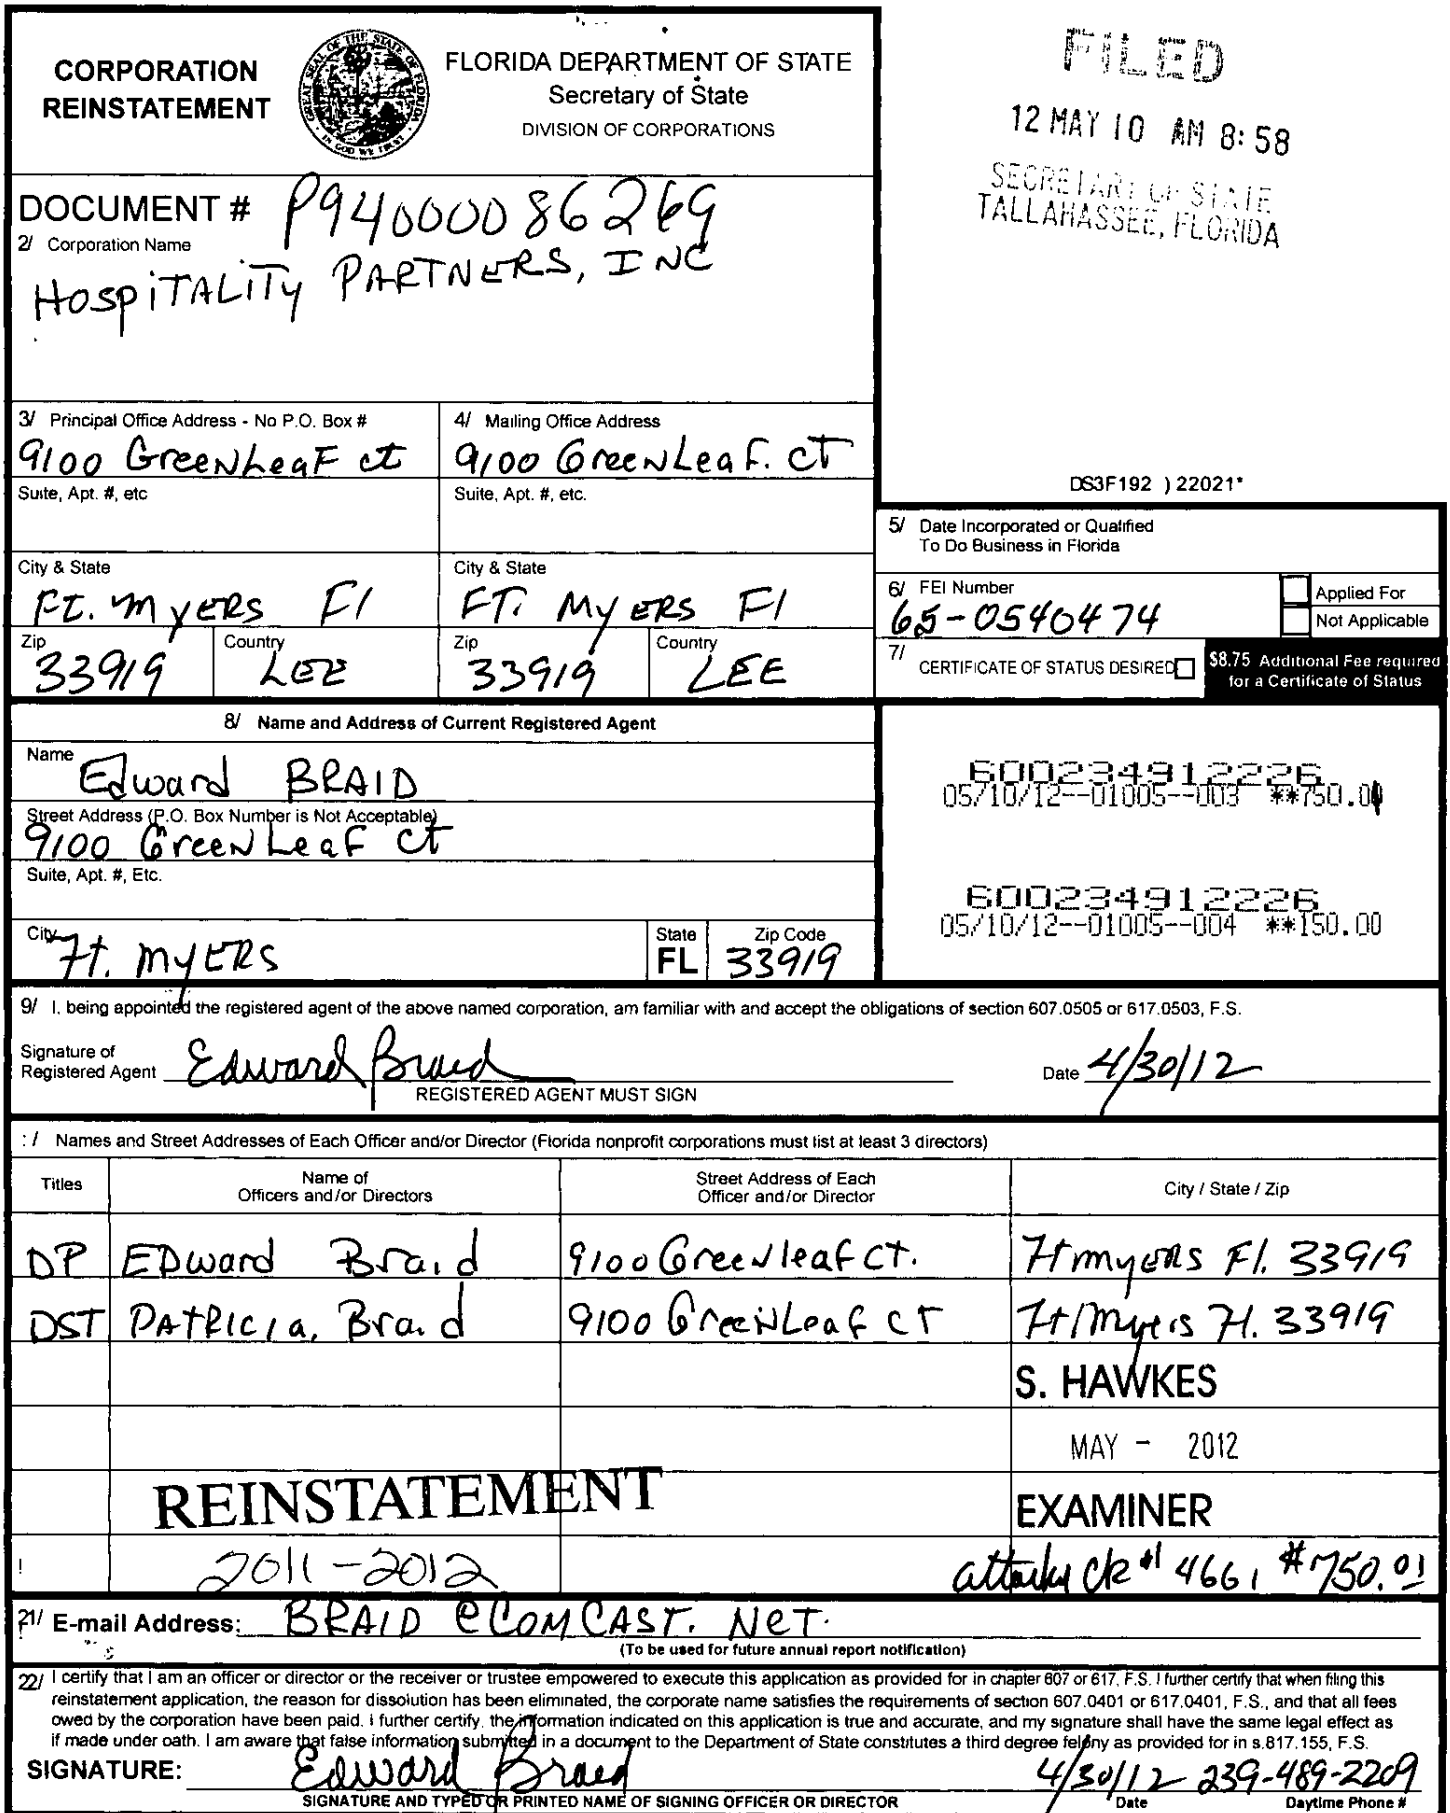 CORPORATION
REINSTATEMENT
FLORIDA DEPARTMENT OF STATE
Secretary of State
DIVISION OF CORPORATIONS
FILED
12 MAY 10 AM 8:58
SECRETARY OF STATE
TALLAHASSEE, FLORIDA
DOCUMENT # P94000086269
2/ Corporation Name
HospiTALiTy PARTNERS, INC
3/ Principal Office Address - No P.O. Box #
9100 GreenLeaF ct
4/ Mailing Office Address
9100 GreenLeaF. CT
Suite, Apt. #, etc
Suite, Apt. #, etc.
DS3F192 ) 22021*
City & State
Ft. MyERS Fl
City & State
FT. MyERS Fl
Zip
33919
Country
LEE
Zip
33919
Country
LEE
5/ Date Incorporated or Qualified
To Do Business in Florida
6/ FEI Number
65-0540474
Applied For
Not Applicable
7/ CERTIFICATE OF STATUS DESIRED
$8.75 Additional Fee required
for a Certificate of Status
8/ Name and Address of Current Registered Agent
Name
Edward BRAID
Street Address (P.O. Box Number is Not Acceptable)
9100 GreenLeaf Ct
Suite, Apt. #, Etc.
City
Ft. MyERS
State
FL
Zip Code
33919
600234912226
05/10/12--01005--003 **750.00
600234912226
05/10/12--01005--004 **150.00
9/ I, being appointed the registered agent of the above named corporation, am familiar with and accept the obligations of section 607.0505 or 617.0503, F.S.
Signature of
Registered Agent Edward Braid
Date 4/30/12
REGISTERED AGENT MUST SIGN
: / Names and Street Addresses of Each Officer and/or Director (Florida nonprofit corporations must list at least 3 directors)
Titles
Name of
Officers and/or Directors
Street Address of Each
Officer and/or Director
City / State / Zip
DP EDward Braid 9100 Greenleaf CT. Ft myERS Fl. 33919
DST PATRICIA Braid 9100 GreenLeaf CT Ft Myers Fl. 33919
S. HAWKES
MAY - 2012
REINSTATEMENT
EXAMINER
2011-2012
ck #4661 750.01
21/ E-mail Address: BRAID @COMCAST. NeT.
(To be used for future annual report notification)
22/ I certify that I am an officer or director or the receiver or trustee empowered to execute this application as provided for in chapter 607 or 617, F.S. I further certify that when filing this
reinstatement application, the reason for dissolution has been eliminated, the corporate name satisfies the requirements of section 607.0401 or 617.0401, F.S., and that all fees
owed by the corporation have been paid. I further certify, the information indicated on this application is true and accurate, and my signature shall have the same legal effect as
if made under oath. I am aware that false information submitted in a document to the Department of State constitutes a third degree felony as provided for in s.817.155, F.S.
SIGNATURE: Edward Braid 4/30/12 239-489-2209
SIGNATURE AND TYPED OR PRINTED NAME OF SIGNING OFFICER OR DIRECTOR
Date
Daytime Phone #